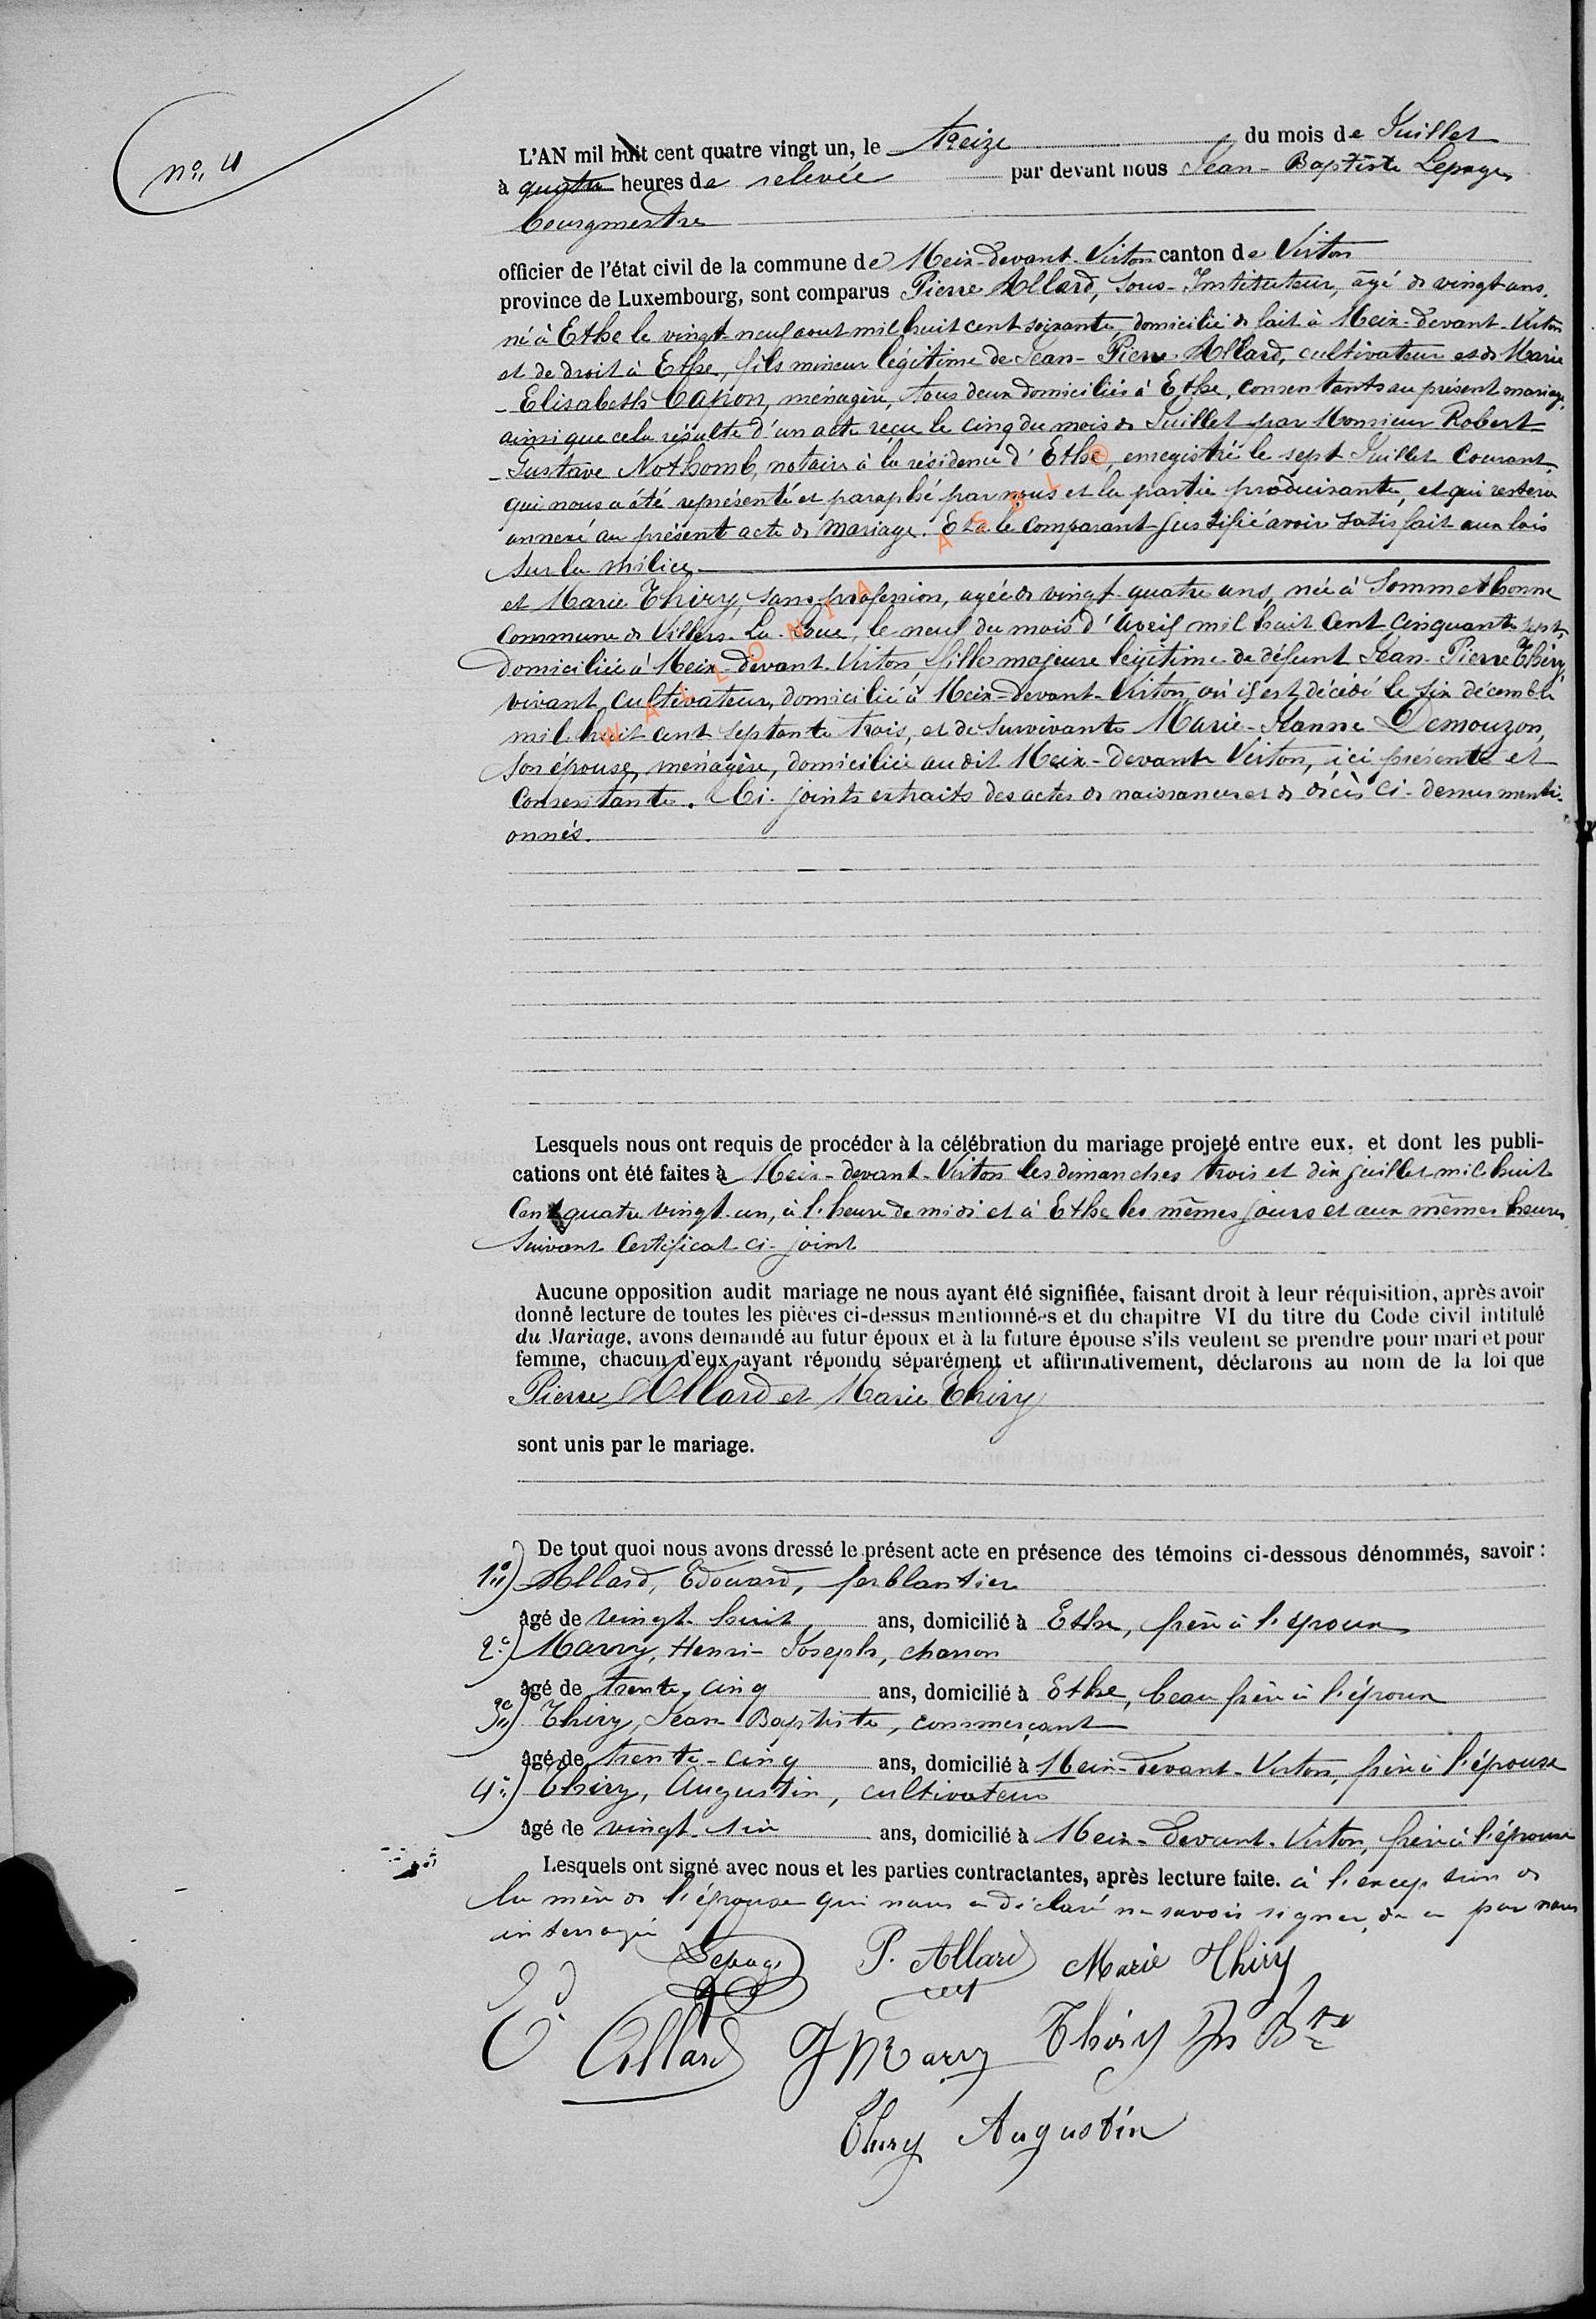 n° 4
L'AN mil huit cent quatre vingt un, le treize du mois de Juillet
à quatre heures de relevée par devant nous Jean-Baptiste Lepage,
bourgmestre
officier de l'état civil de la commune de Meix-devant-Virton canton de Virton
province de Luxembourg, sont comparus Pierre Allard, Sous-Instituteur, âgé de vingt ans,
né à Ethe le vingt-neuf aout mil huit cent soixante, domicilié de fait à Meix-devant-Virton
et de droit à Ethe, fils mineur légitime de Jean-Pierre Allard, cultivateur et de Marie
-Elisabeth Capion, ménagère, tous deux domiciliés à Ethe, consentants au présent mariage,
ainsi que cela résulte d'un acte reçu le cinq du mois de Juillet par Monsieur Robert-
-Gustave Nothomb, notaire à la résidence d'Ethe, enregistré le sept Juillet courant,
qui nous a été représenté et paraphé par nous et la partie produisante, et qui restera
annexé au présent acte de mariage. Et a le comparant justifié avoir satisfait aux lois
sur la milice
et Marie Thiry, sans profession, agée de vingt-quatre ans, née à Sommethonne
commune de Villers-la-Loue, le neuf du mois d'avril mil huit cent cinquante sept,
domiciliée à Meix-devant-Virton, fille majeure légitime de défunt Jean-Pierre Thiry,
vivant cultivateur, domicilié à Meix-devant-Virton, où il est décédé le six décembre
mil huit cent septante trois, et de survivante Marie-Jeanne Demouzon,
son épouse, ménagère, domiciliée audit Meix-devant Virton, ici présente et
consentante. Ci-joints extraits des actes de naissances et de décès ci-dessus menti-
onnés.
WALLONIA ASBL ®
Lesquels nous ont requis de procéder à la célébration du mariage projeté entre eux, et dont les publi-
cations ont été faites à Meix-devant-Virton les dimanches trois et dix juillet mil huit
cent quatre vingt-un, à l'heure de midi et à Ethe les mêmes jours et aux mêmes heures,
suivant certificat ci-joint
Aucune opposition audit mariage ne nous ayant été signifiée, faisant droit à leur réquisition, après avoir
donné lecture de toutes les pièces ci-dessus mentionnées et du chapitre VI du titre du Code civil intitulé
du Mariage, avons demandé au futur époux et à la future épouse s'ils veulent se prendre pour mari et pour
femme, chacun d'eux ayant répondu séparément et affirmativement, déclarons au nom de la loi que
Pierre Allard et Marie Thiry
sont unis par le mariage.
De tout quoi nous avons dressé le présent acte en présence des témoins ci-dessous dénommés, savoir :
1°) Allard, Edouard, ferblantier
âgé de vingt-huit ans, domicilié à Ethe, frère à l'époux
2°) Marry, Henri-Joseph, charron
âgé de trente-cinq ans, domicilié à Ethe, beau frère à l'époux
3°) Thiry, Jean Baptiste, commerçant
âgé de trente-cinq ans, domicilié à Meix-devant-Virton, frère à l'épouse
4°) Thiry, Augustin, cultivateur
âgé de vingt-six ans, domicilié à Meix-devant-Virton, frère à l'épouse
Lesquels ont signé avec nous et les parties contractantes, après lecture faite. à l'exception de
la mère de l'épouse qui nous a déclaré ne savoir signer, de ce par nous
interrogée
Lepage P. Allard Marie Thiry
E. Allard J Marry Thiry Jn Bte
Thiry Augustin